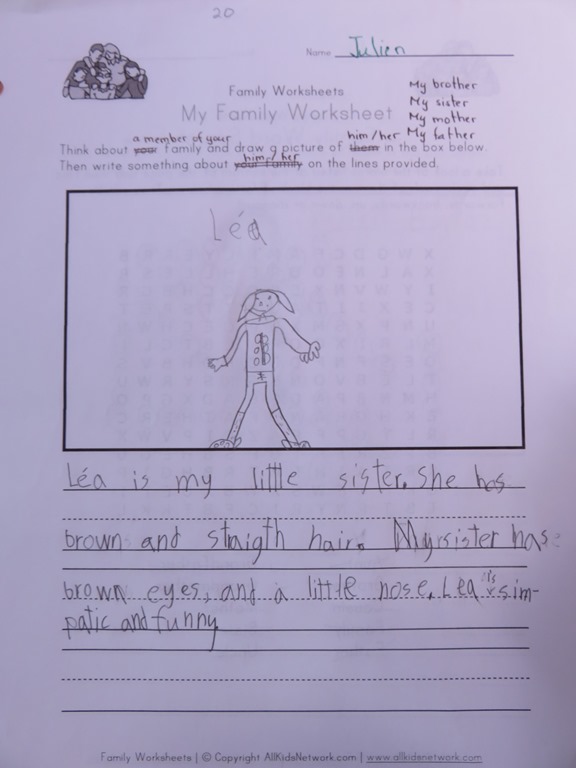 20
Name Julien
Family Worksheets
My Family Worksheet
My brother
My sister
My mother
My father
a member of your him/her
Think about your family and draw a picture of them in the box below.
him/her
Then write something about your family on the lines provided.
Léa
Léa is my little sister. She has
brown and staigth hair. My sister has
brown eyes, and a little nose. Léa is sim-
patic and funny
Family Worksheets | © Copyright AllKidsNetwork.com | www.allkidsnetwork.com